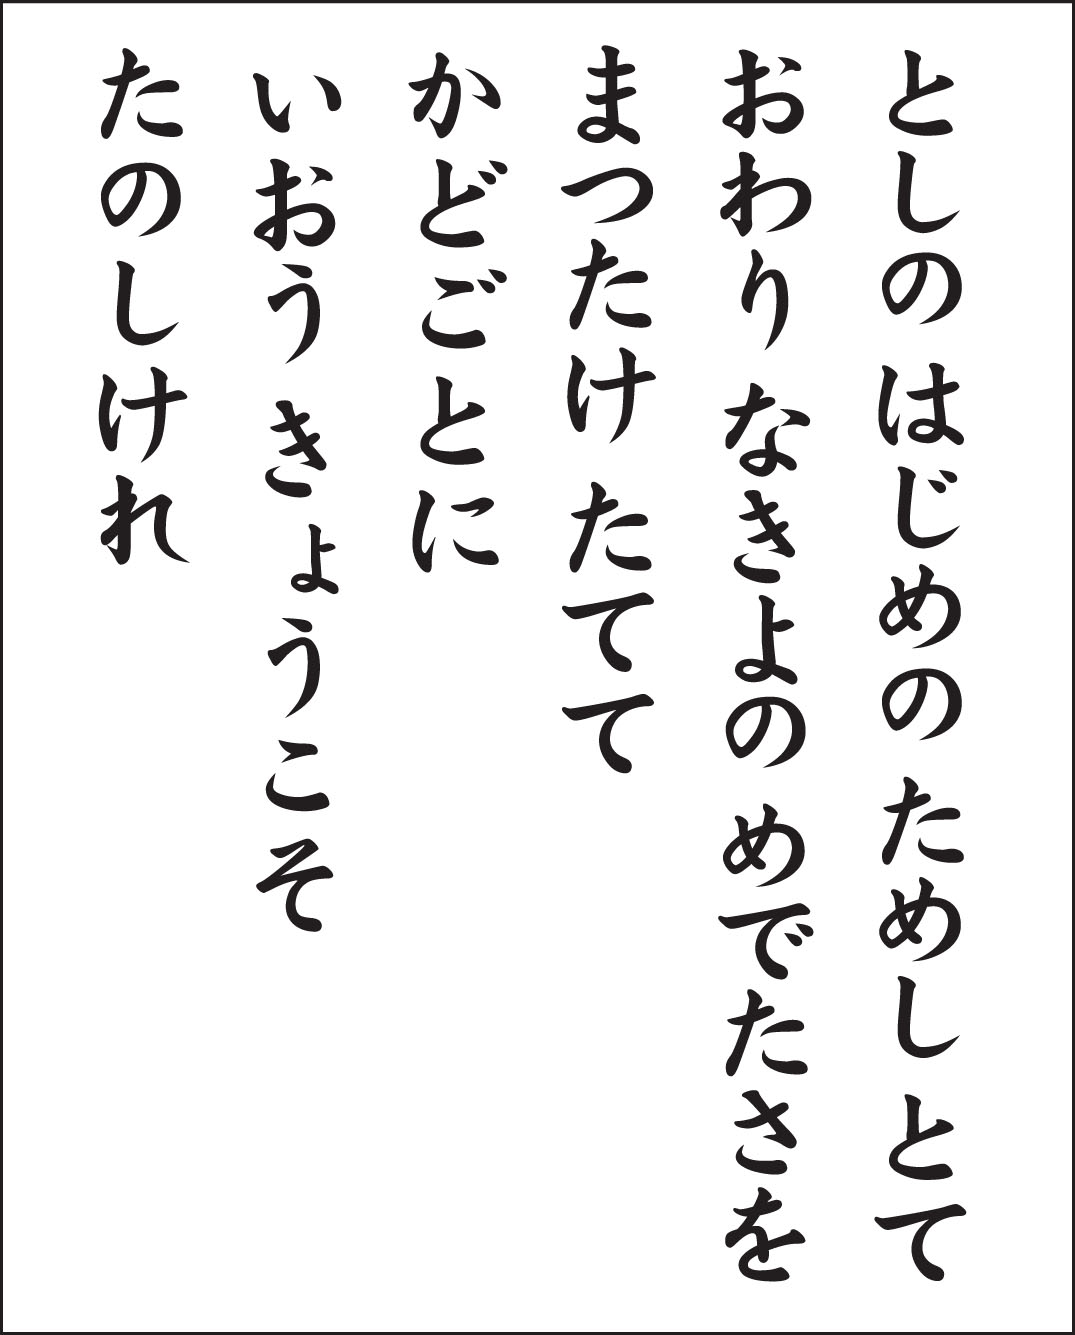 としの はじめの ためし とて
おわり なきよの めでたさを
まつたけ たてて
かどごとに
いおう きょうこそ
たのしけれ